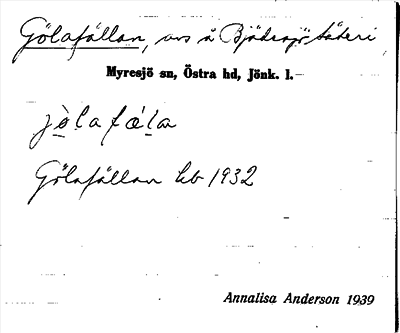 Gölafållan, avs å Bjädesjö säteri
Myresjö sn, Östra hd, Jönk. l.
jö̀lafála
Gölafållan hb 1932
Annalisa Anderson 1939